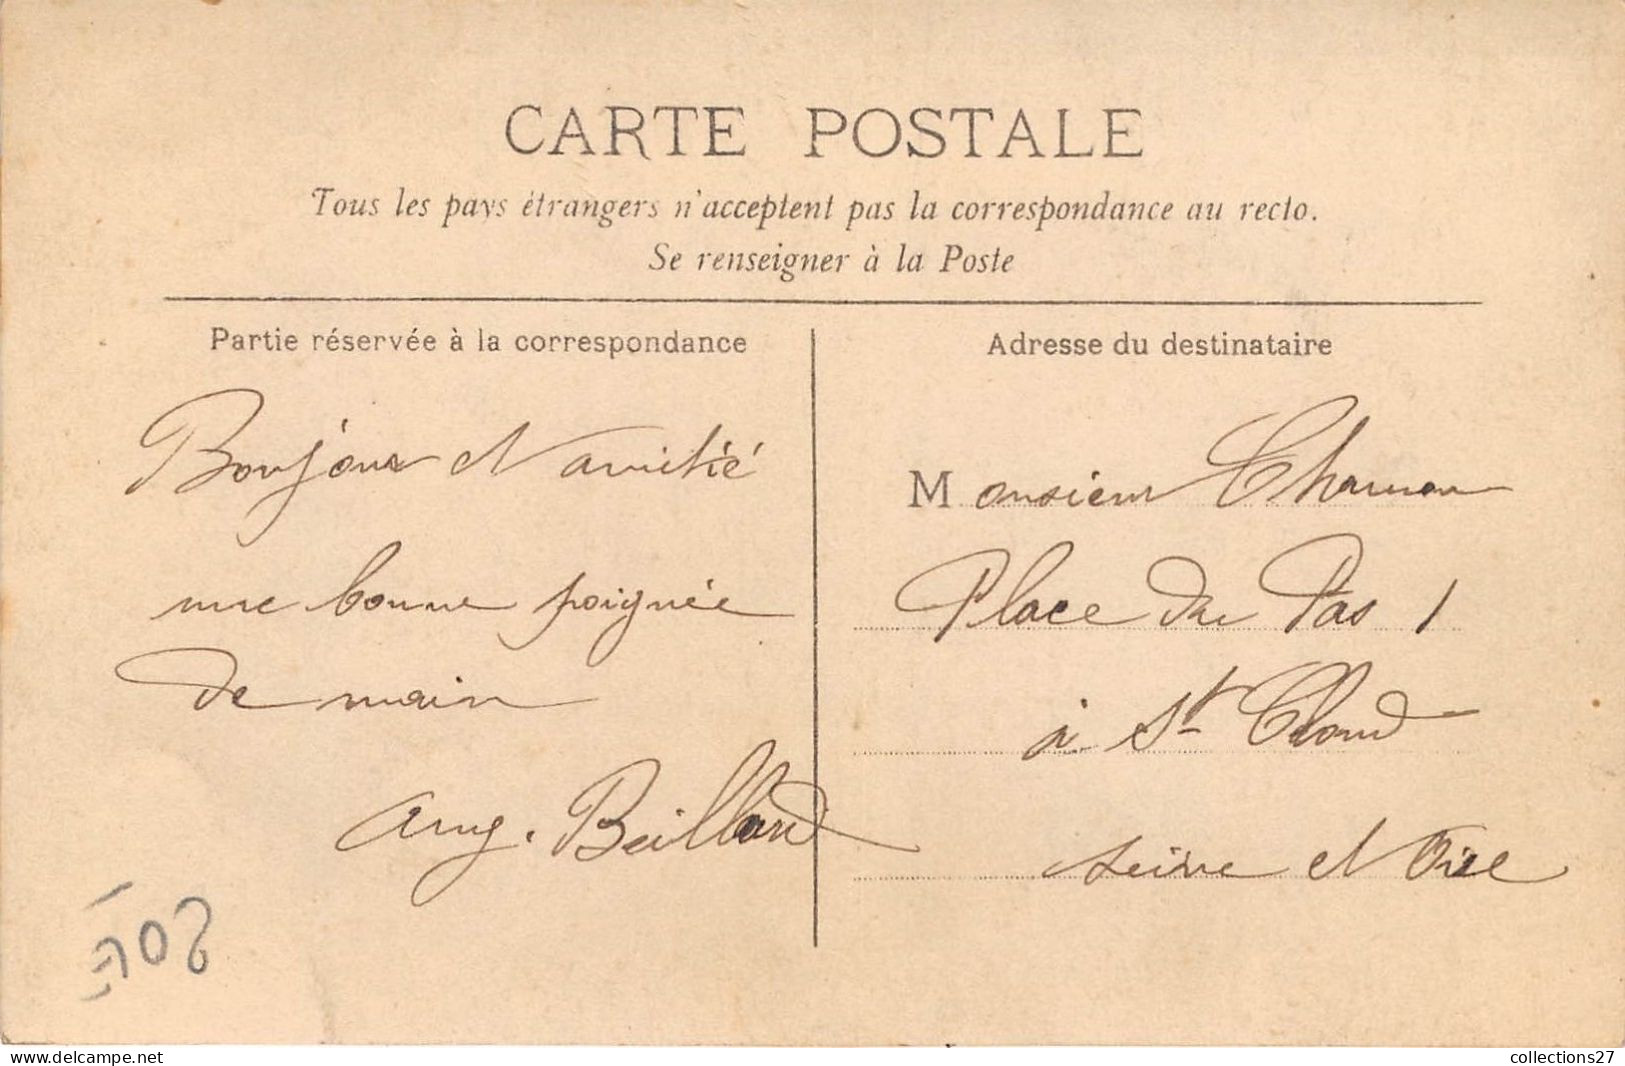 CARTE POSTALE
Tous les pays étrangers n'acceptent pas la correspondance au recto.
Se renseigner à la Poste
Partie réservée à la correspondance
Bonjour et amitié
une bonne poignée
de main
Aug. Beillard
Adresse du destinataire
Monsieur
Place du Pas 1
à St Cloud
Seine et Oise
collections27
www.delcampe.net